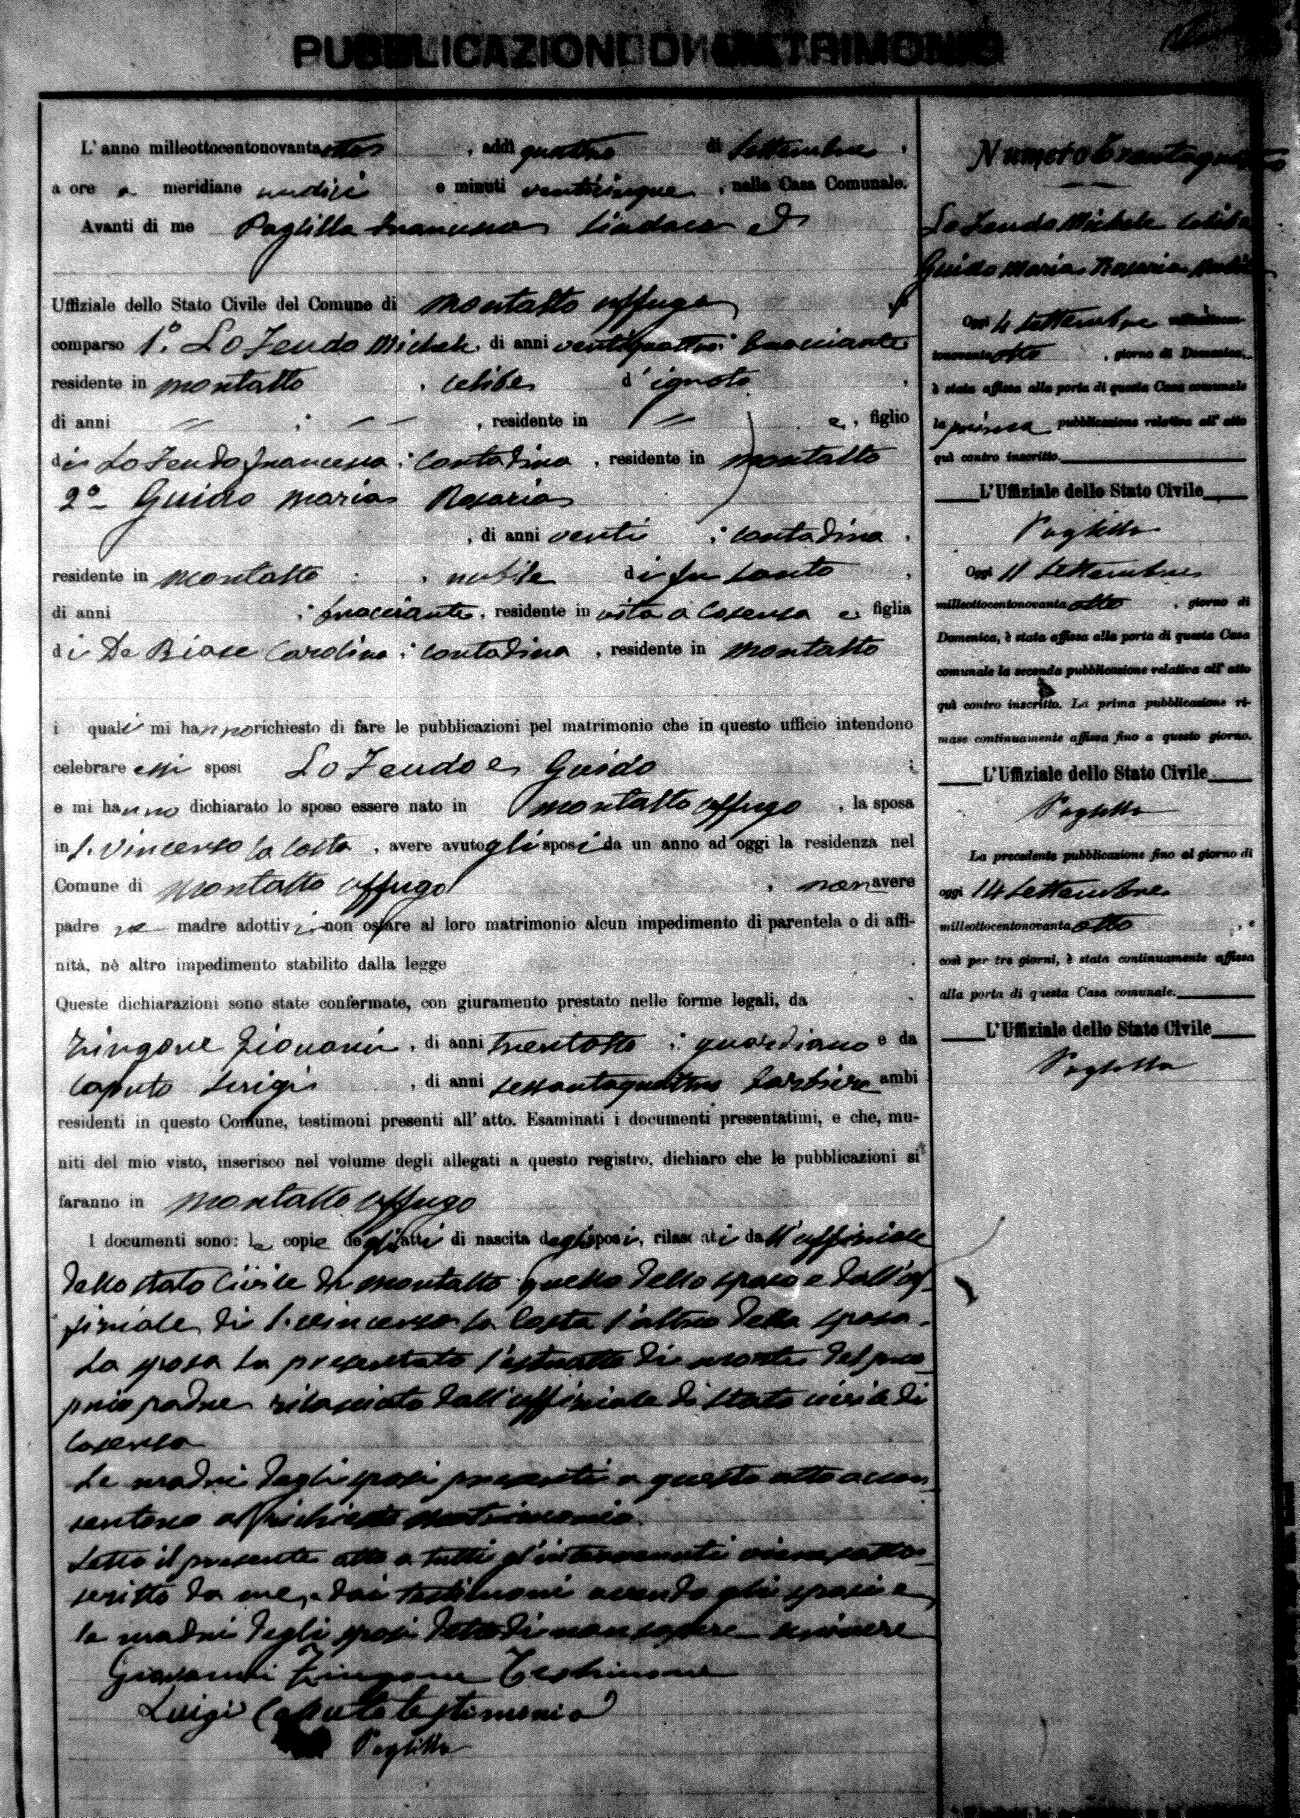 PUBBLICAZIONE DI MATRIMONIO
L'anno milleottocentonovantaotto, addì quattro di Settembre,
a ore a meridiane undici e minuti venticinque, nella Casa Comunale.
Avanti di me Paglilla Francesco Sindaco ed
Uffiziale dello Stato Civile del Comune di Montalto Uffugo
comparso 1.° Lo Feudo Michele, di anni ventiquattro; bracciante
residente in Montalto, celibe d'ignoto,
di anni " ; " , residente in " e, figlio
di Lo Feudo Francesca; contadina, residente in Montalto
2° Guido Maria Rosaria
, di anni venti ; contadina,
residente in Montalto, nubile di fu Santo,
di anni ; bracciante, residente in vita a Cosenza e figlia
di De Biase Carolina; contadina, residente in Montalto
i quali mi hanno richiesto di fare le pubblicazioni pel matrimonio che in questo ufficio intendono
celebrare essi sposi Lo Feudo e Guido ;
e mi hanno dichiarato lo sposo essere nato in Montalto Uffugo, la sposa
in S. Vincenzo la Costa, avere avuto gli sposi da un anno ad oggi la residenza nel
Comune di Montalto Uffugo, non avere
padre ne madre adottivi, non ostare al loro matrimonio alcun impedimento di parentela o di affi-
nità, nè altro impedimento stabilito dalla legge.
Queste dichiarazioni sono state confermate, con giuramento prestato nelle forme legali, da
Zingone Giovanni, di anni trentotto; guardiano e da
Caputo Luigi, di anni sessantaquattro barbiere ambi
residenti in questo Comune, testimoni presenti all'atto. Esaminati i documenti presentatimi, e che, mu-
niti del mio visto, inserisco nel volume degli allegati a questo registro, dichiaro che le pubblicazioni si
faranno in Montalto Uffugo
I documenti sono: le copie degli atti di nascita degli sposi, rilasciati dall'uffiziale
dello stato civile di Montalto quello dello sposo e dall'uf-
fiziale di S. Vincenzo la Costa l'altro della sposa.
La sposa ha presentato l'estratto di morte del pro-
prio padre rilasciato dall'uffiziale di stato civile di
Cosenza
Le madri degli sposi presenti a questo atto accon-
sentono al richiesto matrimonio.
Letto il presente atto a tutti gl'intervenuti viene sotto-
scritto da me, e dai testimoni avendo gli sposi e
le madri degli sposi detto di non sapere scrivere
Giovanni Zingone Testimone
Luigi Caputo testimonio
Paglilla
Numero Trentaquattro
Lo Feudo Michele celibe
Guido Maria Rosaria nubile
Oggi 4 Settembre milleottocen-
tonovantaotto, giorno di Domenica,
è stata affissa alla porta di questa Casa comunale
la prima pubblicazione relativa all'atto
quì contro inscritto.
L'Uffiziale dello Stato Civile
Paglilla
Oggi 11 Settembre
milleottocentonovantaotto, giorno di
Domenica, è stata affissa alla porta di questa Casa
comunale la seconda pubblicazione relativa all'atto
quì contro inscritto. La prima pubblicazione ri-
mase continuamente affissa fino a questo giorno.
L'Uffiziale dello Stato Civile
Paglilla
La precedente pubblicazione fino al giorno di
oggi 14 Settembre
milleottocentonovantaotto, e
così per tre giorni, è stata continuamente affissa
alla porta di questa Casa comunale.
L'Uffiziale dello Stato Civile
Paglilla